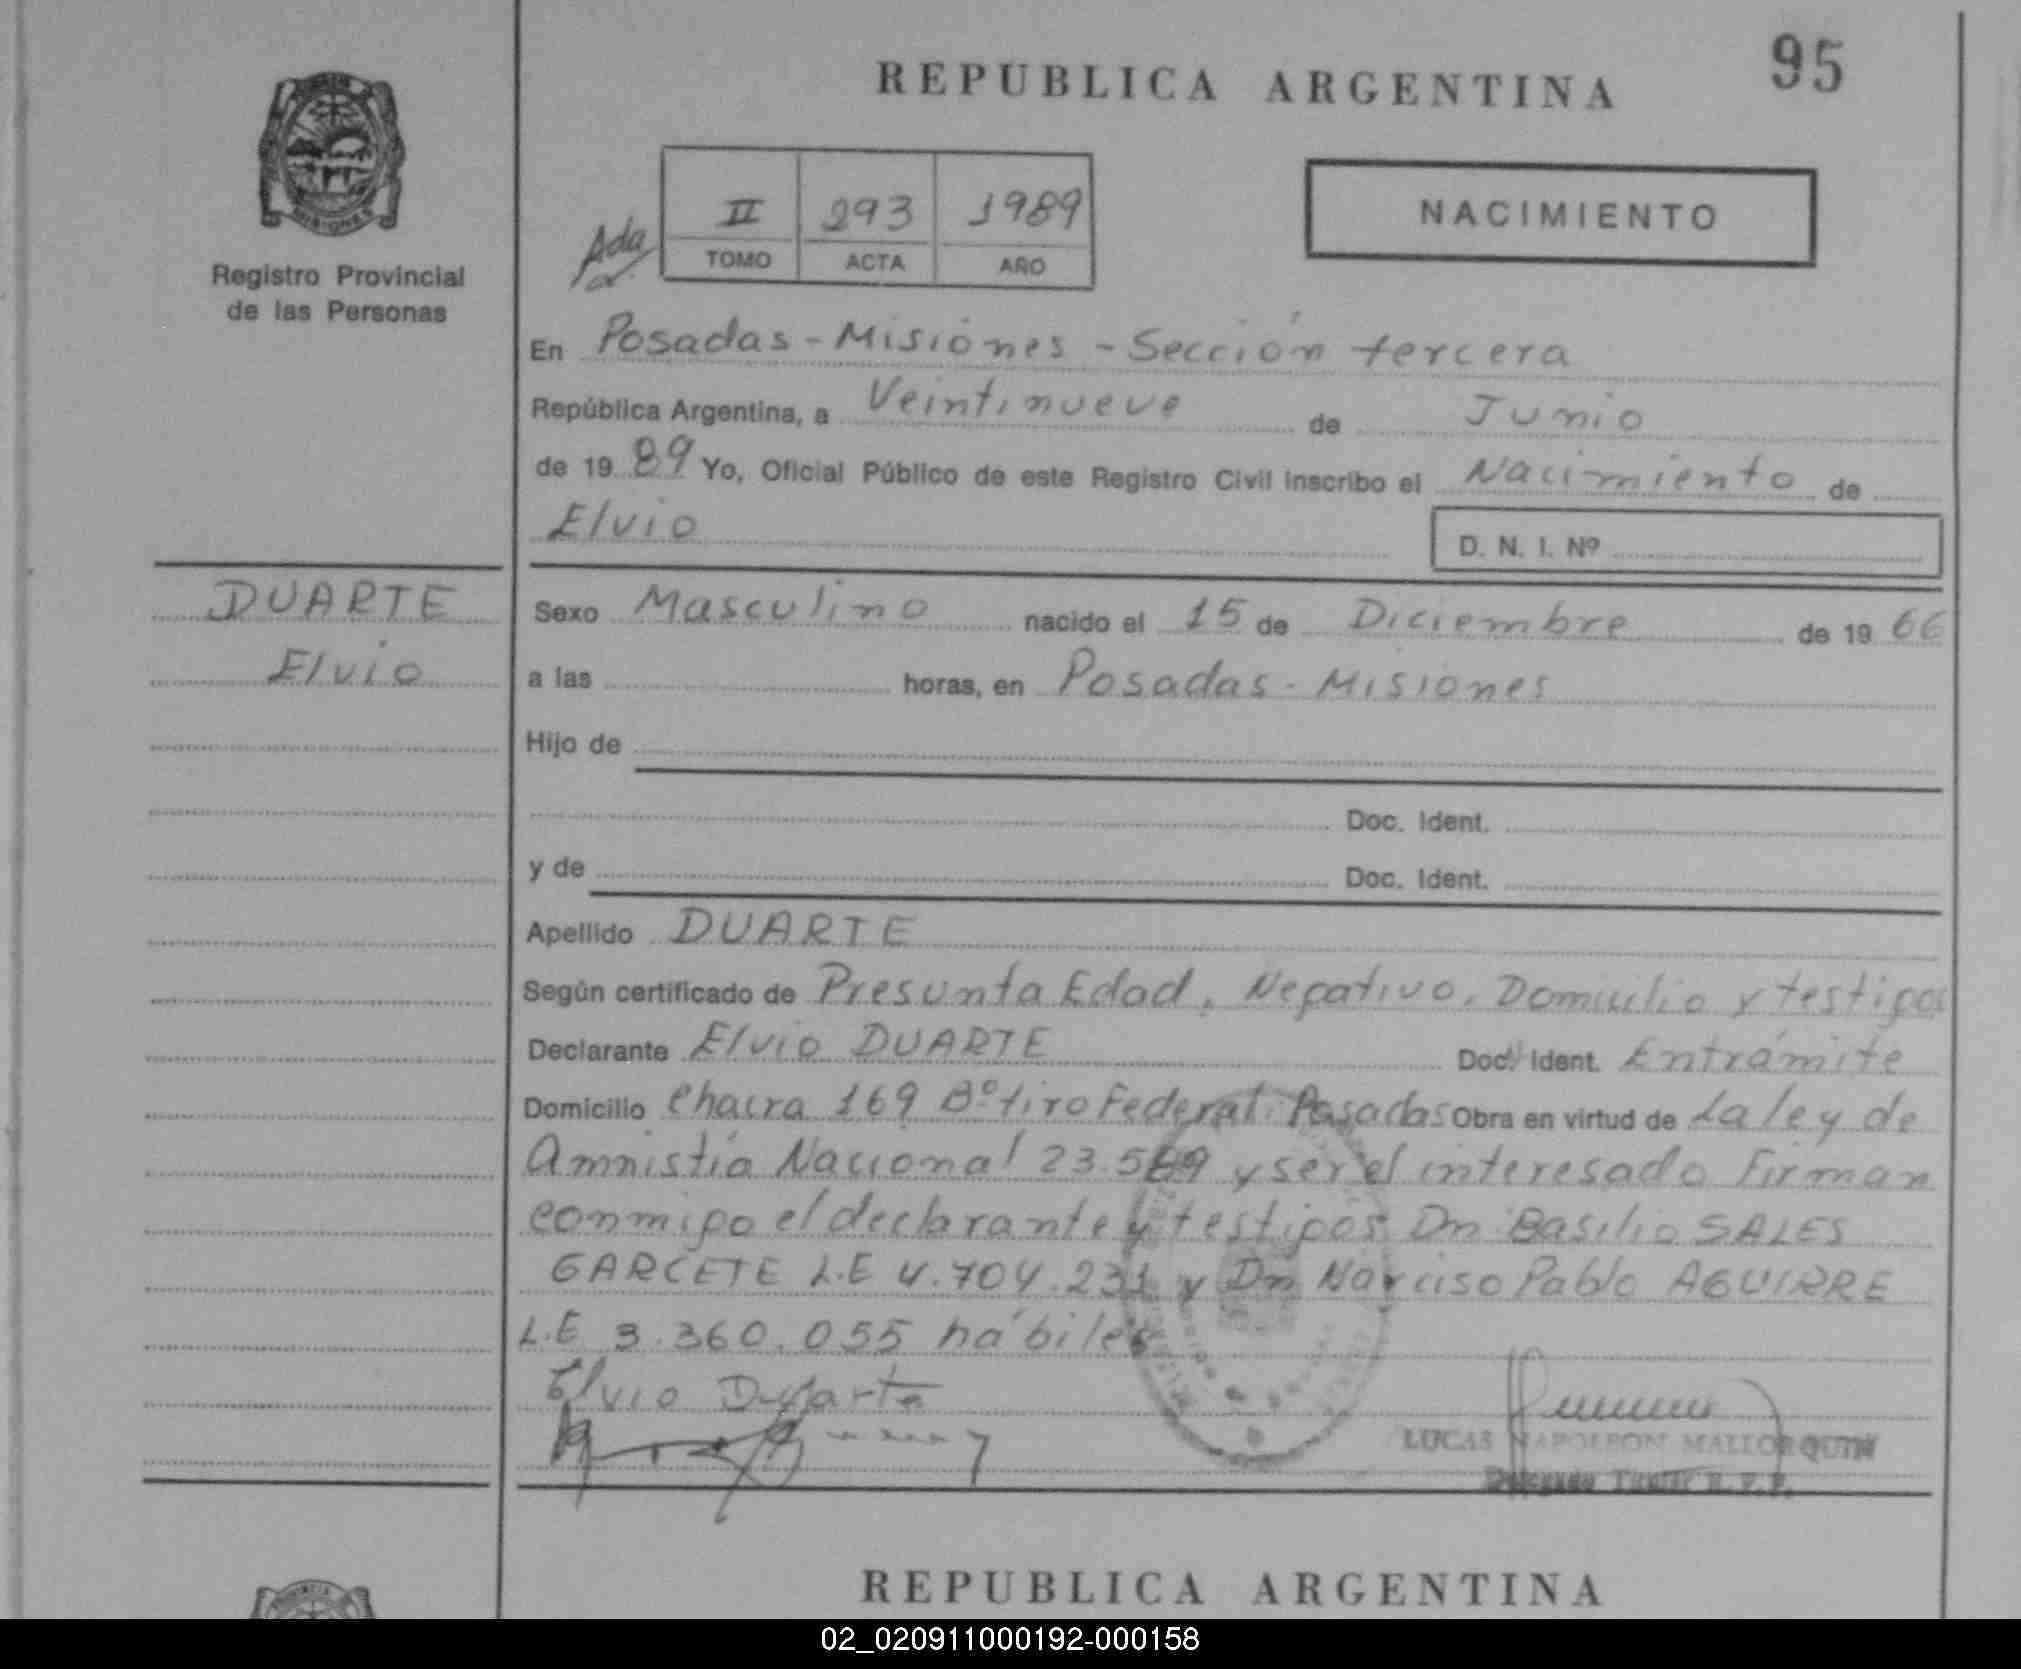 95
REPUBLICA ARGENTINA
MISIONES
Registro Provincial
de las Personas
Ada
II 293 1989
TOMO ACTA AÑO
NACIMIENTO
En Posadas - Misiones - Sección tercera
República Argentina, a Veintinueve de Junio
de 19 89 Yo, Oficial Público de este Registro Civil inscribo el Nacimiento de
Elvio
D. N. I. Nº
DUARTE
Elvio
Sexo Masculino nacido el 15 de Diciembre de 19 66
a las horas, en Posadas - Misiones
Hijo de
Doc. Ident.
y de Doc. Ident.
Apellido DUARTE
Según certificado de Presunta Edad, Negativo, Domicilio y testigos
Declarante Elvio DUARTE Doc. Ident. Entrámite
Domicilio Chacra 169 Bº tiro Federal. Posadas Obra en virtud de La ley de
Amnistía Nacional 23.5 9 y ser el interesado Firman
conmigo el declarante y testigos Dn Basilio SALES
GARCETE L.E 4.704.231 y Dn Narciso Pablo AGUIRRE
L.E 3.360.055 hábiles
Elvio Duarte
LUCAS NAPOLEON MALLORQUIN
Delegado Titular R.P.P.
REPUBLICA ARGENTINA
02_020911000192-000158